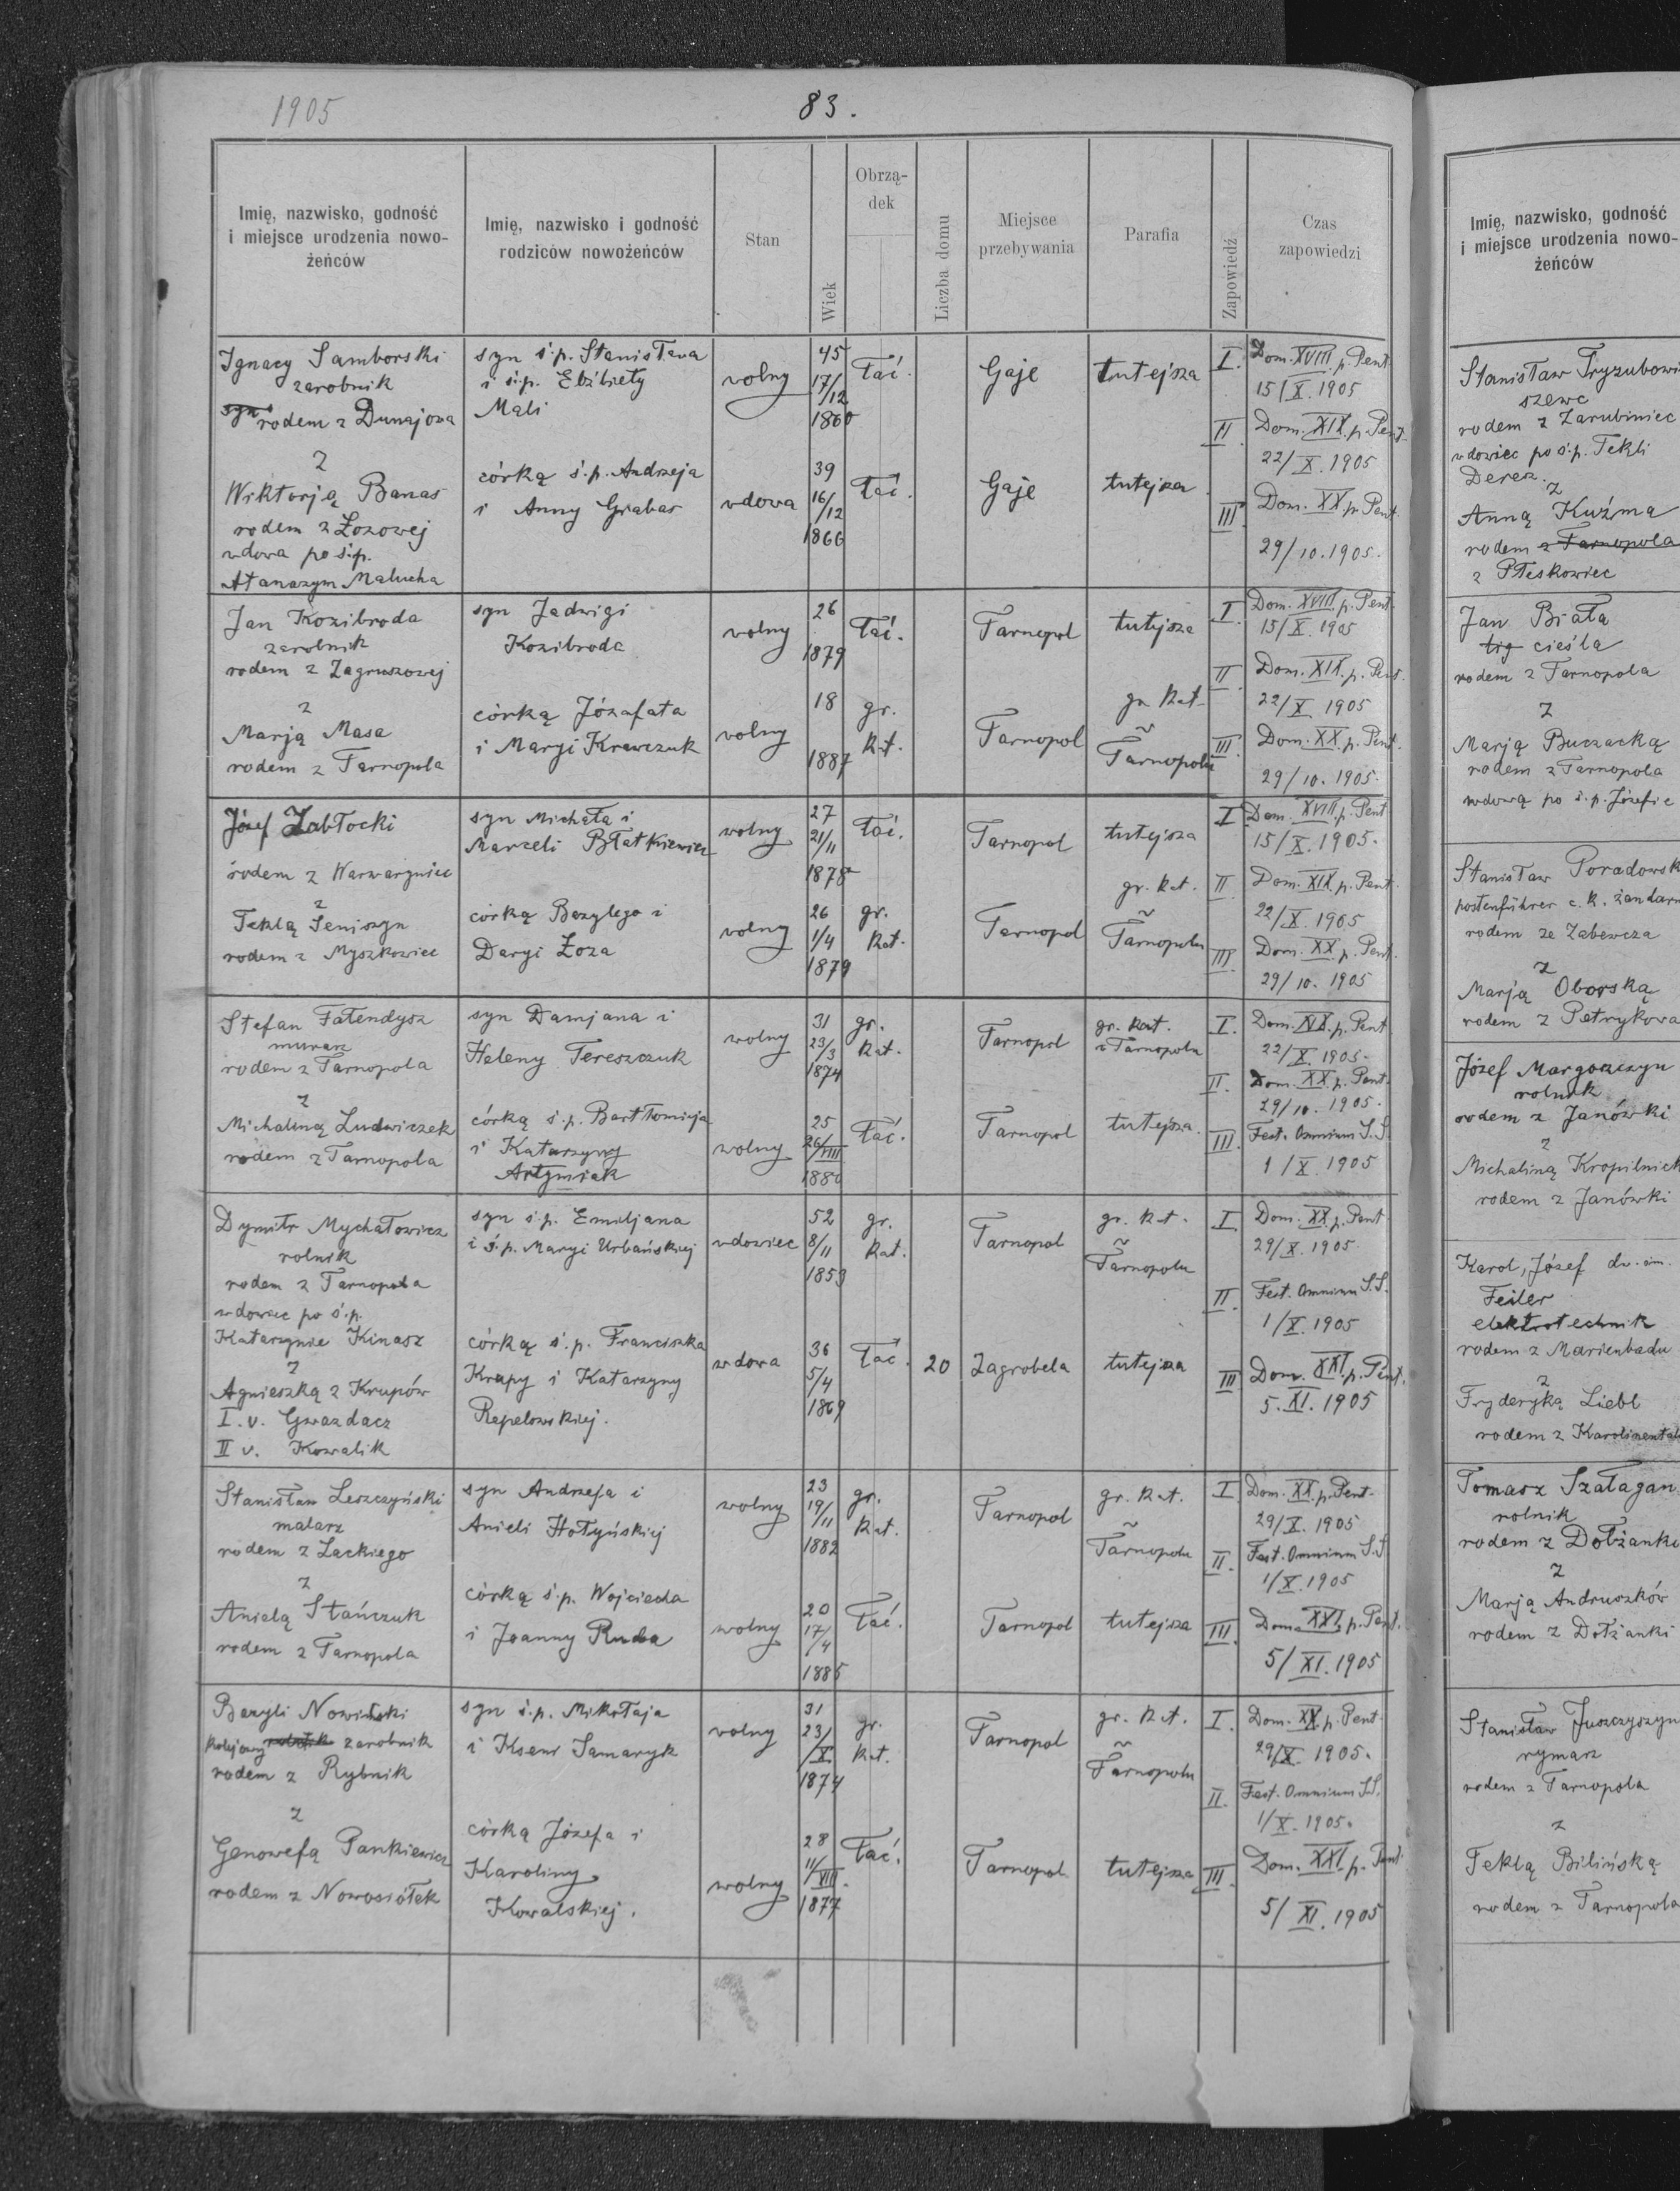 1905
83.
Imię, nazwisko, godność
i miejsce urodzenia nowo-
żeńców
Imię, nazwisko i godność
rodziców nowożeńców
Stan
Wiek
Obrzą-
dek
Liczba domu
Miejsce
przebywania
Parafia
Zapowiedź
Czas
zapowiedzi
Ignacy Samborski
zarobnik
syn rodem z Dunajowa
syn ś.p. Stanisława
i ś.p. Elżbiety
Mali
wolny
45
17/12
1860
łać.
Gaje
tutejsza
I. Dom. XVIII p. Pent.
15/X. 1905
II Dom. XIX. p. Pent.
22/X. 1905
III Dom. XX p. Pent.
29/10. 1905.
z
Wiktorją Banas
rodem z Łozowej
wdowa po ś.p.
Atanazym Malucha
córką ś.p. Andrzeja
i Anny Grabas
wdowa
39
16/12
1866
łać.
Gaje
tutejsza
Jan Kozibroda
zarobnik
rodem z Zagruszowej
syn Jadwigi
Kozibroda
wolny
26
1879
łać.
Tarnopol
tutejsza
I Dom. XVIII. p. Pent.
15/X. 1905
II Dom. XIX. p. Pent.
22/X 1905
III Dom. XX. p. Pent.
29/10. 1905.
z
Marją Masa
rodem z Tarnopola
córką Józafata
i Maryi Krawczuk
wolny
18
1887
gr.
kat.
Tarnopol
gr. kat.
w
Tarnopolu
Józef Zabłocki
rodem z Warwaryniec
syn Michała i
Marceli Błatkiewicz
wolny
27
21/11
1878
łać.
Tarnopol
tutejsza
I Dom. XVIII. p. Pent.
15/X. 1905.
II Dom. XIX. p. Pent.
22/X. 1905
III Dom. XX. p. Pent.
29/10. 1905
z
Teklą Seniszyn
rodem z Myszkowiec
córką Bazylego i
Daryi Łoza
wolny
26
1/4
1879
gr.
kat.
Tarnopol
gr. kat.
w
Tarnopolu
Stefan Fałendysz
murarz
rodem z Tarnopola
syn Damjana i
Heleny Tereszczuk
wolny
31
23/3
1874
gr.
kat.
Tarnopol
gr. kat.
w Tarnopolu
I. Dom. XIX. p. Pent
22/X. 1905.
II. Dom. XX. p. Pent.
29/10. 1905.
III Fest. Omnium S.S.
1/X. 1905
z
Michaliną Ludwiczek
rodem z Tarnopola
córką ś.p. Bartłomieja
i Katarzyny
Artymiak
wolny
25
26/VIII
1880
łać.
Tarnopol
tutejsza.
Dymitr Mychałowicz
rolnik
rodem z Tarnopola
wdowiec po ś.p.
Katarzynie Kinasz
syn ś.p. Emiljana
i ś.p. Maryi Urbańskiej
wdowiec
52
8/11
1853
gr.
kat.
Tarnopol
gr. kat.
w
Tarnopolu
I. Dom. XX. p. Pent
29/X. 1905
II. Fest. Omnium S.S.
1/X. 1905
III Dom. XXI. p. Pent.
5. XI. 1905
z
Agnieszką z Krupów
I. v. Gwazdacz
II v. Kowalik
córką ś.p. Franciszka
Krupy i Katarzyny
Repelowskiej.
wdowa
36
5/4
1869
łać.
20
Zagrobela
tutejsza
Stanisław Leszczyński
malarz
rodem z Lackiego
syn Andrzeja i
Anieli Hołyńskiej
wolny
23
19/11
1882
gr.
kat.
Tarnopol
gr. kat.
w
Tarnopolu
I. Dom. XX. p. Pent.
29/X. 1905
II. Fest. Omnium S.S.
1/X. 1905
III. Dom. XXI. p. Pent.
5/XI. 1905
z
Anielą Stańczuk
rodem z Tarnopola
córką ś.p. Wojciecha
i Joanny Ruda
wolny
20
17/4
1885
łać.
Tarnopol
tutejsza
Bazyli Nowiński
kolejowy rolnik zarobnik
rodem z Rybnik
syn ś.p. Mikołaja
i Kseni Samaryk
wolny
31
23/X.
1874
gr.
kat.
Tarnopol
gr. kat.
w
Tarnopolu
I. Dom. XX. p. Pent.
29/X. 1905.
II. Fest. Omnium S.S.
1/X. 1905.
III. Dom. XXI. p. Pent.
5/XI. 1905
z
Genowefą Pankiewicz
rodem z Nowosiółek
córką Józefa i
Karoliny
Kowalskiej.
wolny
28
11/VIII.
1877
łać.
Tarnopol
tutejsza
Imię, nazwisko, godność
i miejsce urodzenia nowo-
żeńców
Stanisław
szewc
rodem z Zarubiniec
wdowiec po ś.p. Tekli
Derez.
z
Anną Kuźma
rodem z Tarnopola
z Płeskowiec
Jan Biała
cieśla
rodem z Tarnopola
z
Marją Buczacką
rodem z Tarnopola
wdową po ś.p. Józefie
Stanisław
postenführer c.k.
rodem ze Zabewcza
z
Marją Oborską
rodem z Petrykowa
Józef Margoszczyn
rolnik
rodem z Janówki
z
Michaliną
rodem z Janówki
Karol, Józef dw. im.
Feiler
elektrotechnik
rodem z Marienbadu
z
Fryderyką Liebl
rodem z
Tomasz Szałagan
rolnik
rodem z
z
Marją Andruszków
rodem z Dołżanki
Stanisław Juszczyszyn
rymarz
rodem z Tarnopola
z
Teklą Bilińską
rodem z Tarnopola